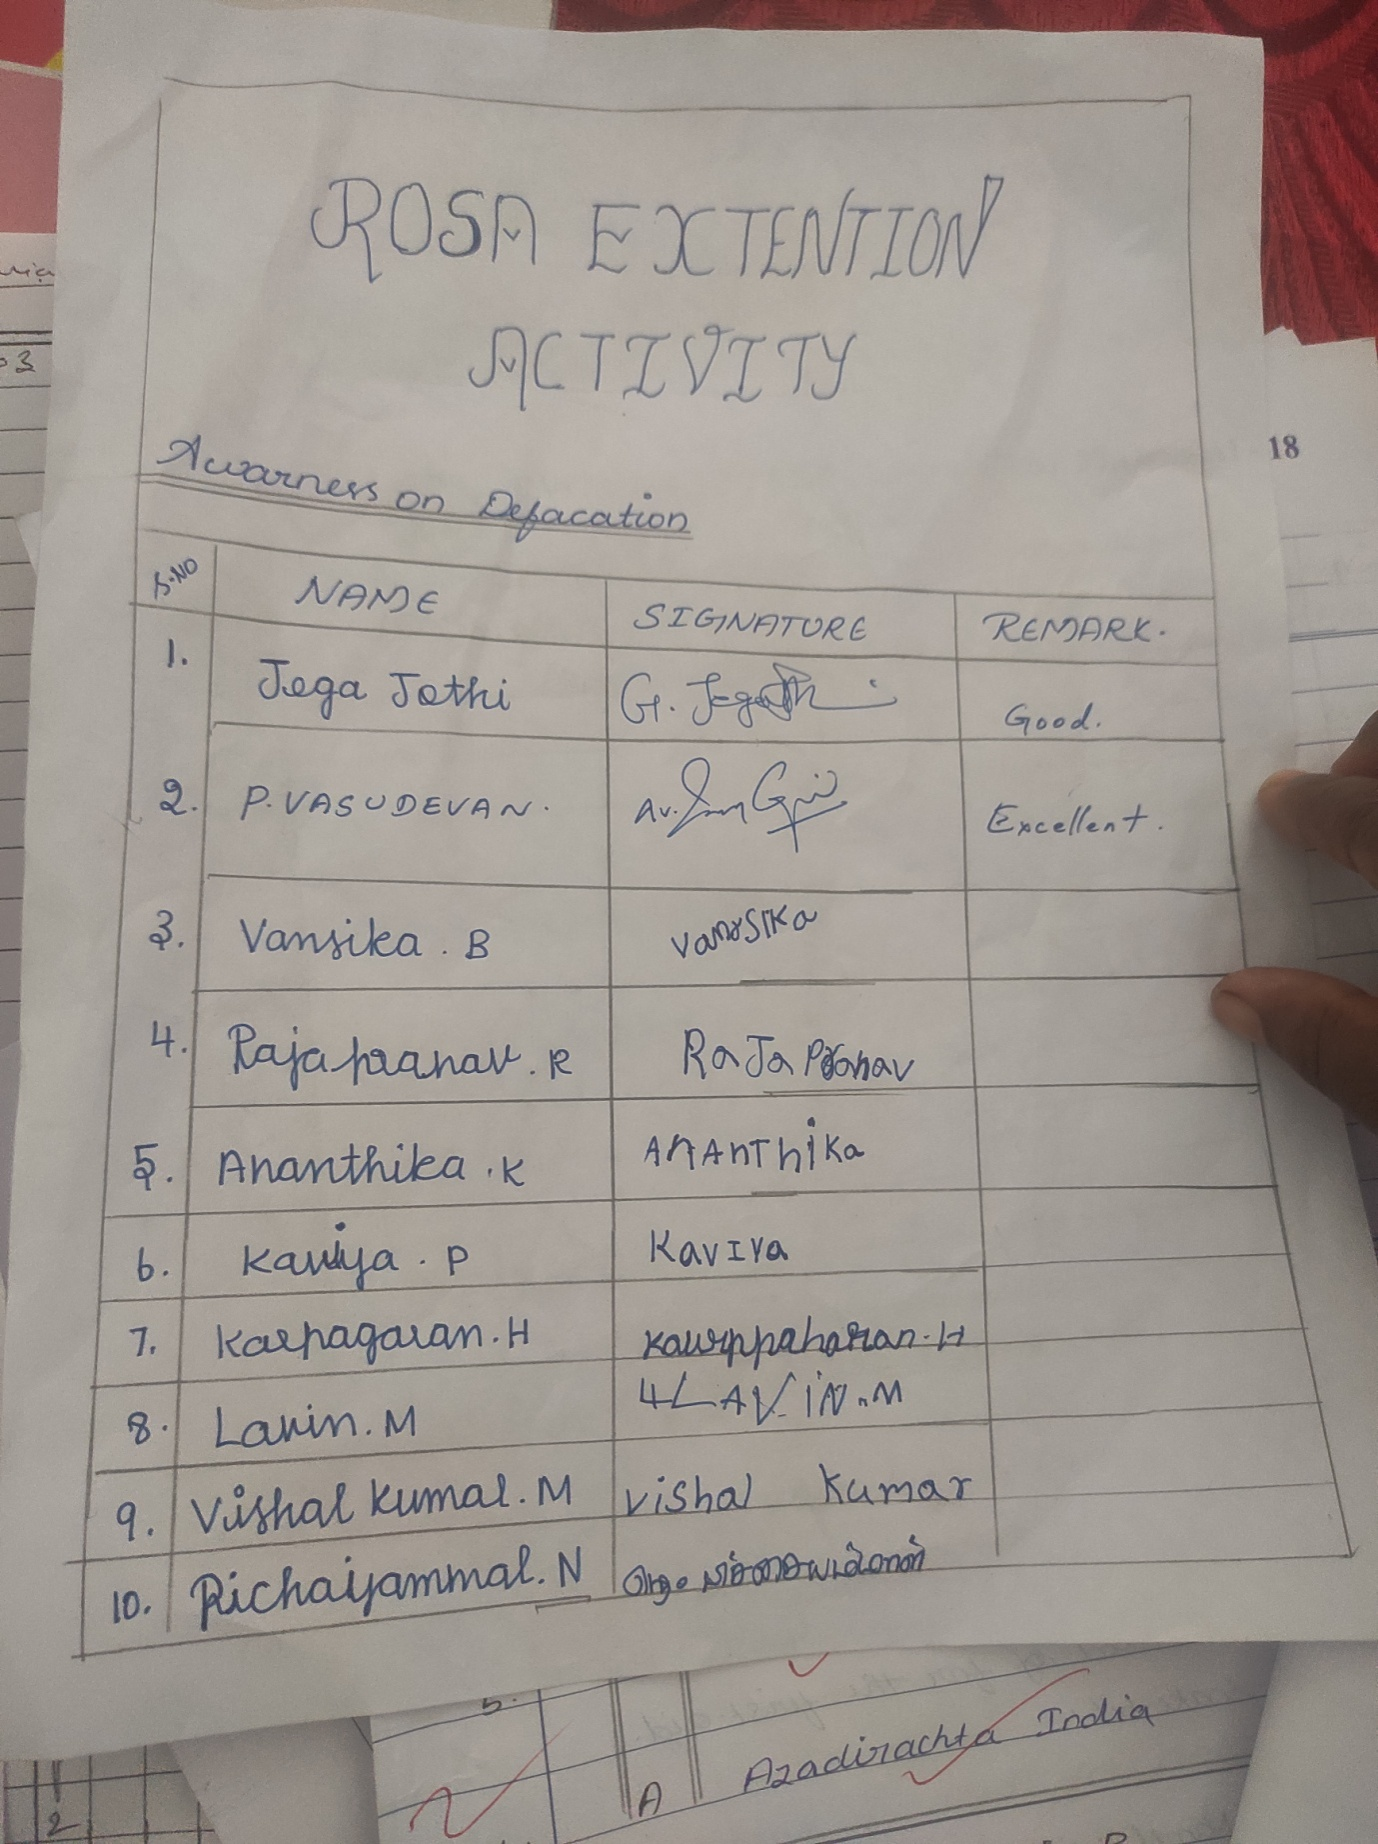 ROSA EXTENTION
ACTIVITY
Awarness on Defacation
S.NO NAME SIGNATURE REMARK.
1. Jega Jothi G. Good.
2. P. VASUDEVAN. Excellent.
3. Vansika . B vansika
4. Rajapranav . R RaJa Pranav
5. Ananthika . K AnAnThika
6. Kaviya . P KavIya
7. Karpagaran. H H
8. Lavin. M LAVIN. M
9. Vishal kumar. M vishal kumar
10. Pichaiyammal. N
18
03
5.
A Azadirachta India
2